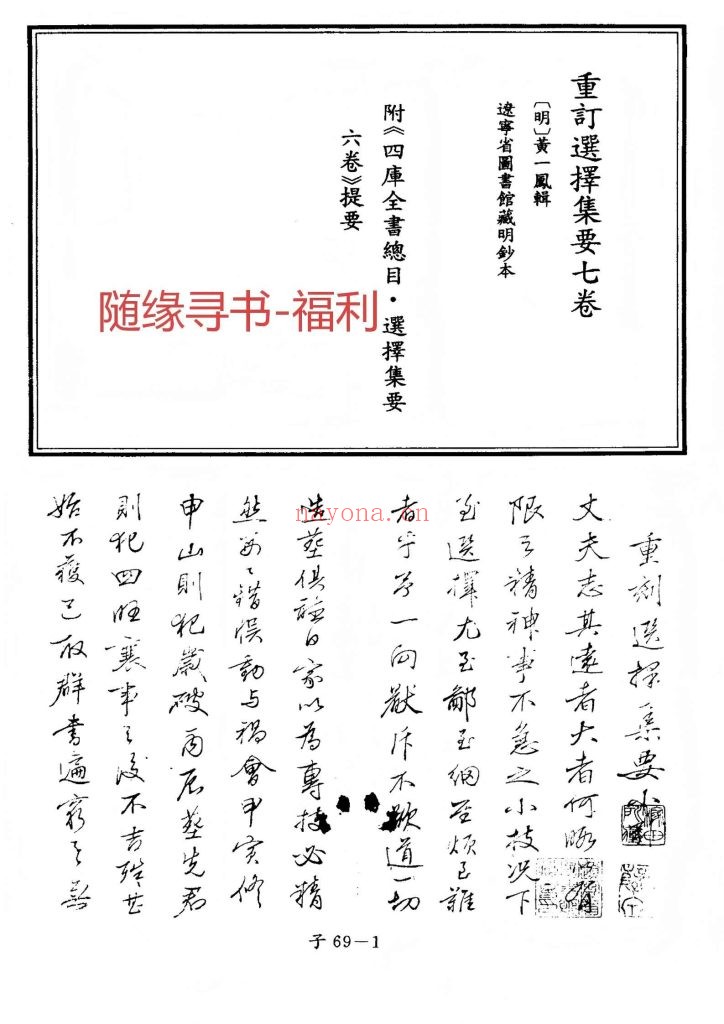 重訂選擇集要七卷
〔明〕黃一鳳輯
遼寧省圖書館藏明鈔本
附《四庫全書總目·選擇集要
六卷》提要
随缘寻书-福利
nayona.cn
重刻選擇集要
丈夫志其遠者大者何暇
限之精神事不急之小技況下
至選擇尤至鄙至細至煩已雜
者乎予一向厭斥不欲道一切
造塟俱諉日家以為專技必精
然每每錯悞動与禍會甲寅修
申山則犯歲破丙辰塟先君
則犯四旺襄事之後不吉
始不獲已取群書遍窮之
子69-1